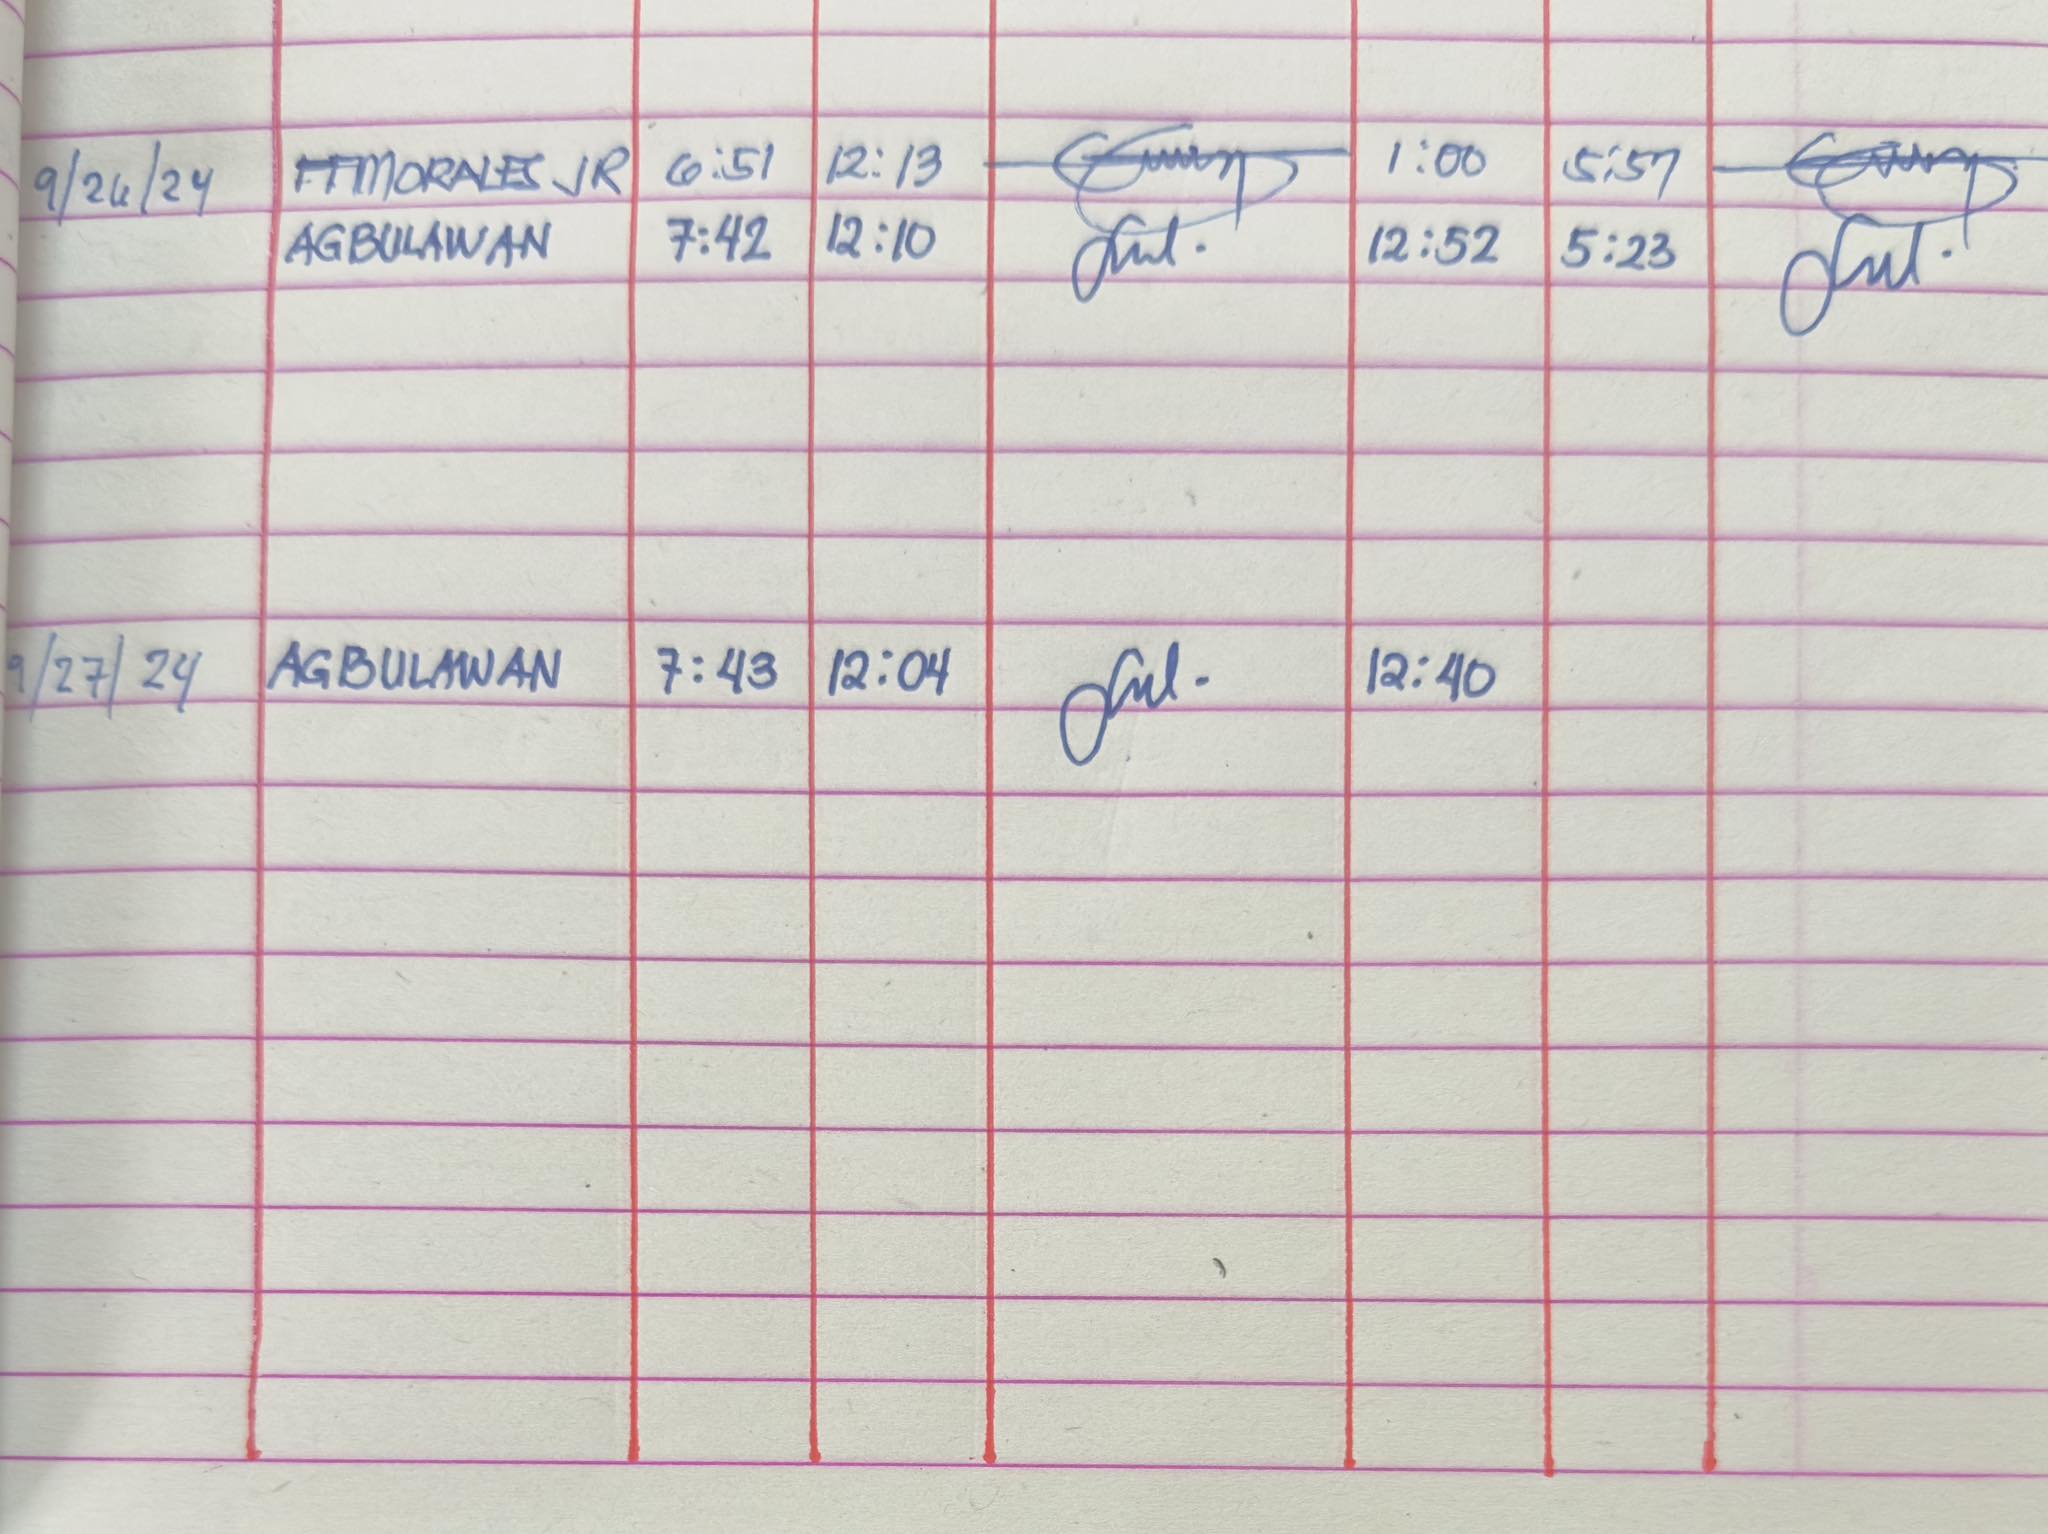 9/26/24 FFMORALES JR 6:51 12:13 1:00 5:57
AGBULAWAN 7:42 12:10 12:52 5:23
9/27/24 AGBULAWAN 7:43 12:04 12:40